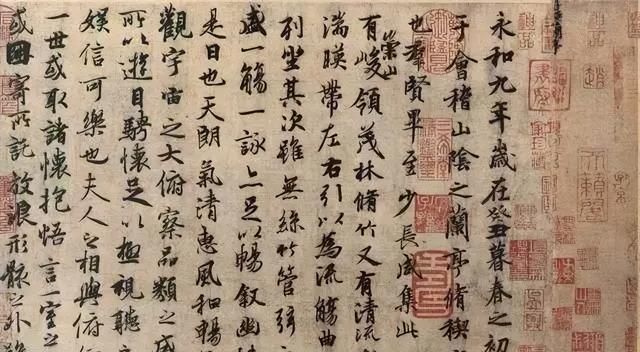 永和九年歲在癸丑暮春之初
于會稽山陰之蘭亭脩稧
也羣賢畢至少長咸集此
有崇山峻領茂林脩竹又有清流
湍暎帶左右引以為流觴曲
列坐其次雖無絲竹管弦
盛一觴一詠亦足以暢叙幽
是日也天朗氣清惠風和暢
觀宇宙之大俯察品類之盛
所以遊目騁懷足以極視聽之
娛信可樂也夫人之相與俯
一世或取諸懷抱悟言一室之
或因寄所託放浪形骸之外